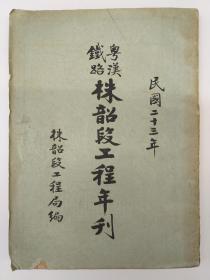 民國二十三年
粵漢鐵路
株韶段工程年刊
株韶段工程局編